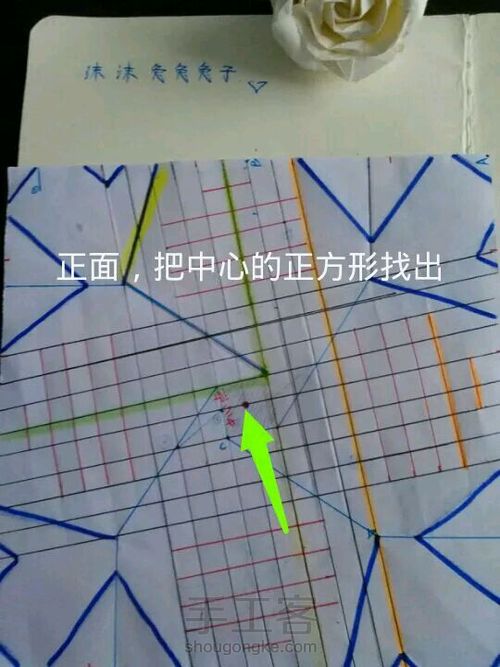 沫沫兔兔兔子
B
A
正面，把中心的正方形找出
C
手工客
shougongke.com